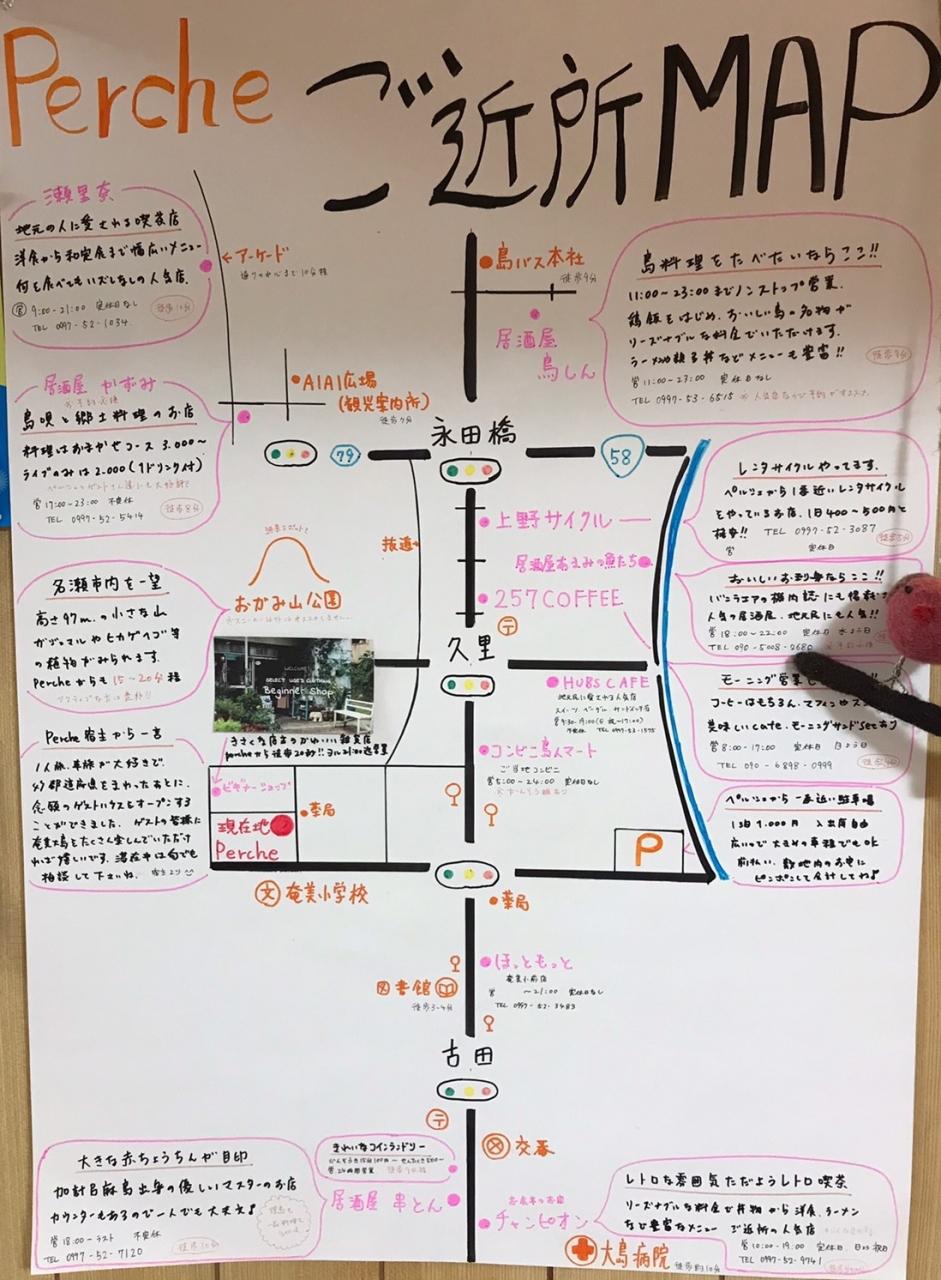 Perche ご近所MAP
瀬里奈
地元の人に愛される喫茶店
洋食から和定食まで幅広いメニュー
何を食べてもハズレなしの人気店。
営 9:00-21:00 定休日なし
TEL 0997-52-1034
徒歩10分
←アーケード
島バス本社
徒歩9分
居酒屋
鳥しん
島料理をたべたいならココ!!
11:00~23:00までノンストップ営業。
鶏飯をはじめ、おいしい島の名物が
リーズナブルな料金でいただけます。
ラーメンや親子丼などメニューも豊富!!
徒歩9分
営 11:00-23:00 定休日なし
TEL 0997-53-6515
居酒屋 かずみ
島唄と郷土料理のお店
料理はおまかせコース 3.000~
ライブのみは2.000(1ドリンク付)
営 17:00-23:00 不定休
TEL 0997-52-5414
徒歩8分
AIAI広場
(観光案内所)
徒歩7分
永田橋
79
58
レンタサイクルやってます。
ペルシェから1番近いレンタサイクル
をやっているお店。1日400~500円と
格安!! TEL 0997-52-3087
営 定休日
上野サイクル
抜道
居酒屋あまみの魚たち
257COFFEE
〒
久里
おいしいお刺身ならココ!!
人気の居酒屋。地元民にも人気!!
営 18:00~22:00 定休日
TEL 090-5008-2680
名瀬市内を一望
高さ97m.の小さな山
ガジュマルやヒカゲヘゴ等
の植物がみられます。
Percheからも15~20分程
おがみ山公園
WELCOME
SELECT USED CLOTHING
Beginner Shop
きさくな店主のかわいい雑貨店
HUBS CAFE
地元民に愛される人気店
スイーツ、ベーグル、サンドイッチ等
TEL 0997-53-1575
モーニング営業
コーヒーはもちろん、マフィンやス
美味しいcafe、モーニングサンドsetあり
営 8:00-17:00 定休日 日よう日
TEL 090-6898-0999
コンビニ島人マート
ご当地コンビニ
営 5:00-24:00 定休日なし
Perche 宿主から一言
1人旅、車旅が大好きで、
47都道府県をまわったあとに、
念願のゲストハウスをオープンする
ことができました。ゲストの皆様に
奄美大島をたくさん楽しんでいただけ
れば嬉しいです。滞在中は何でも
相談して下さいね。宿主より
ビギナーショップ
薬局
現在地
Perche
P
ペルシェから一番近い駐車場
1泊1.000円 入出庫自由
広いので大きめの車種でもOK
前払い。敷地内のお宅に
ピンポンして会計してね♪
文 奄美小学校
薬局
ほっともっと
奄美小前店
営 ~21:00 定休日なし
TEL 0997-52-3483
図書館
徒歩3-4分
古田
〒
交番
きれいなコインランドリー
営 24時間営業
居酒屋 串とん
大きな赤ちょうちんが目印
加計呂麻島出身の優しいマスターのお店
カウンターもあるので一人でも大丈夫♪
営 18:00-ラスト 不定休
TEL 0997-52-7120
徒歩10分
チャンピオン
レトロな雰囲気ただようレトロ喫茶
リーズナブルな料金で丼物から洋食、ラーメン
など豊富なメニュー ご近所の人気店
営 10:00-19:00 定休日、日よう祝日
TEL 0997-52-9741
大島病院 徒歩約10分